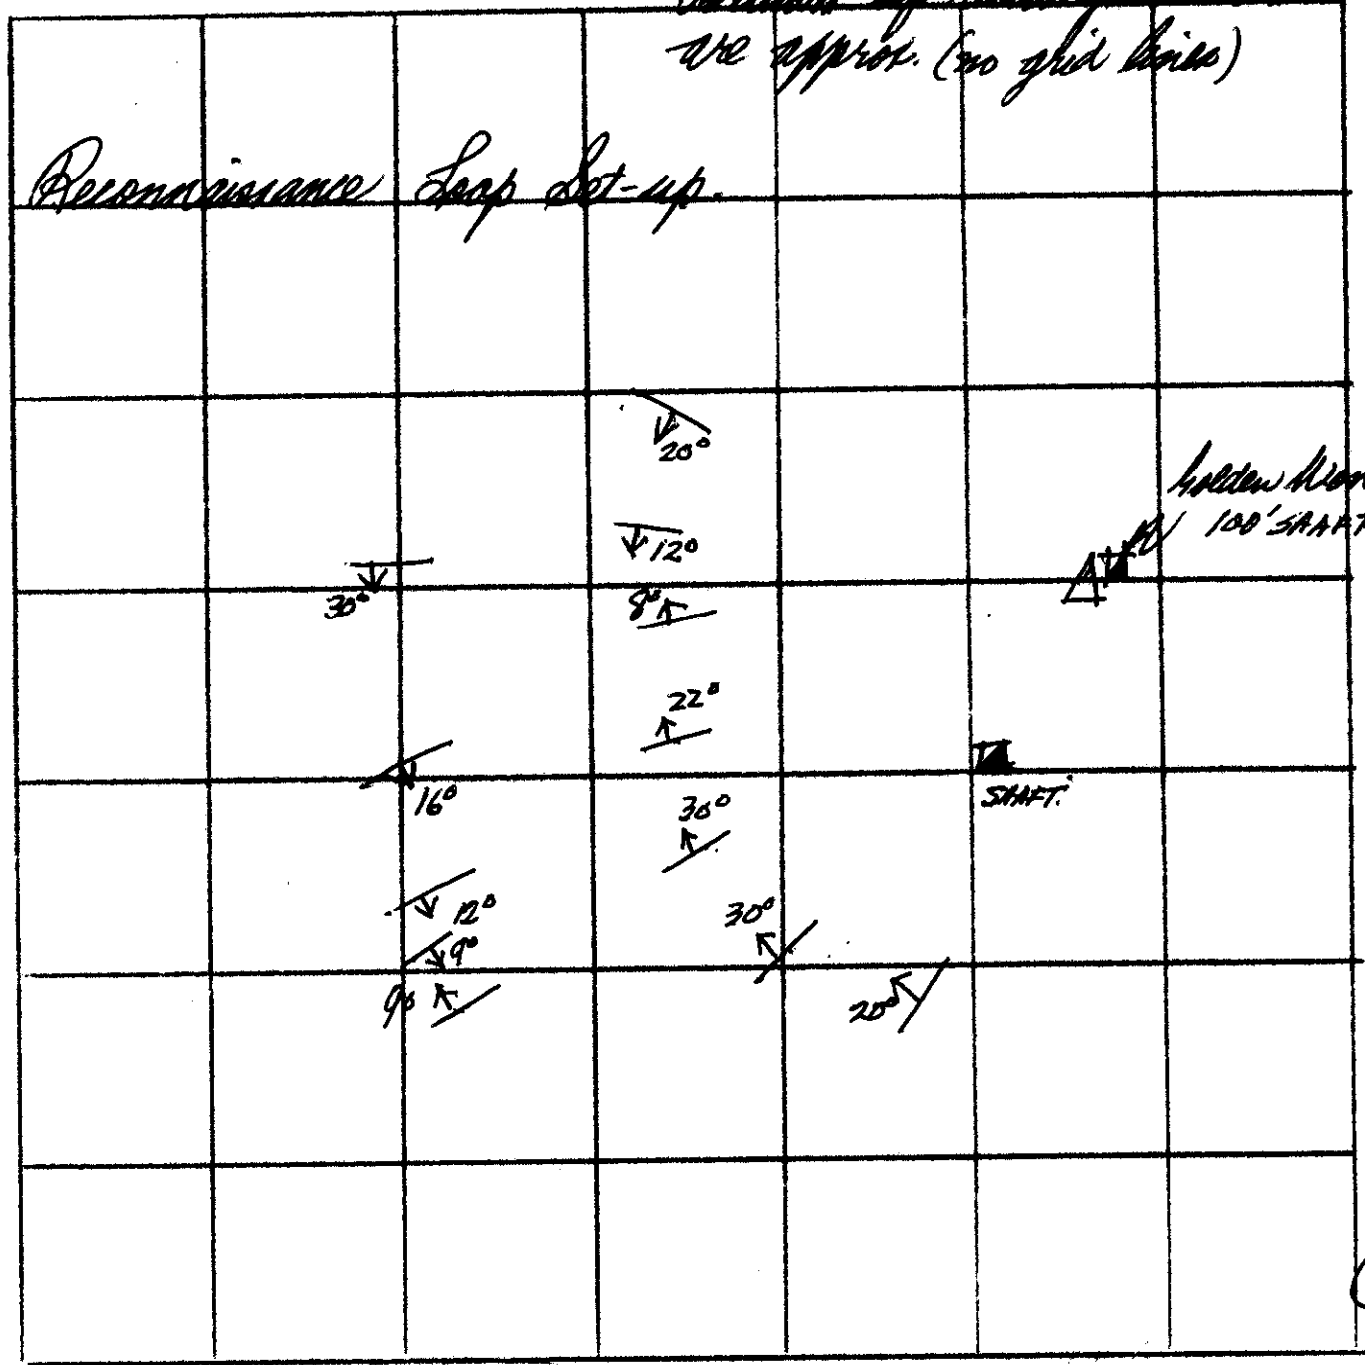 are approx. (no grid lines)
Reconnaissance Loop Set-up.
20°
Golden
100' SHAFT
12°
30°
8°
22°
16°
SHAFT.
30°
12°
30°
9°
9°
20°